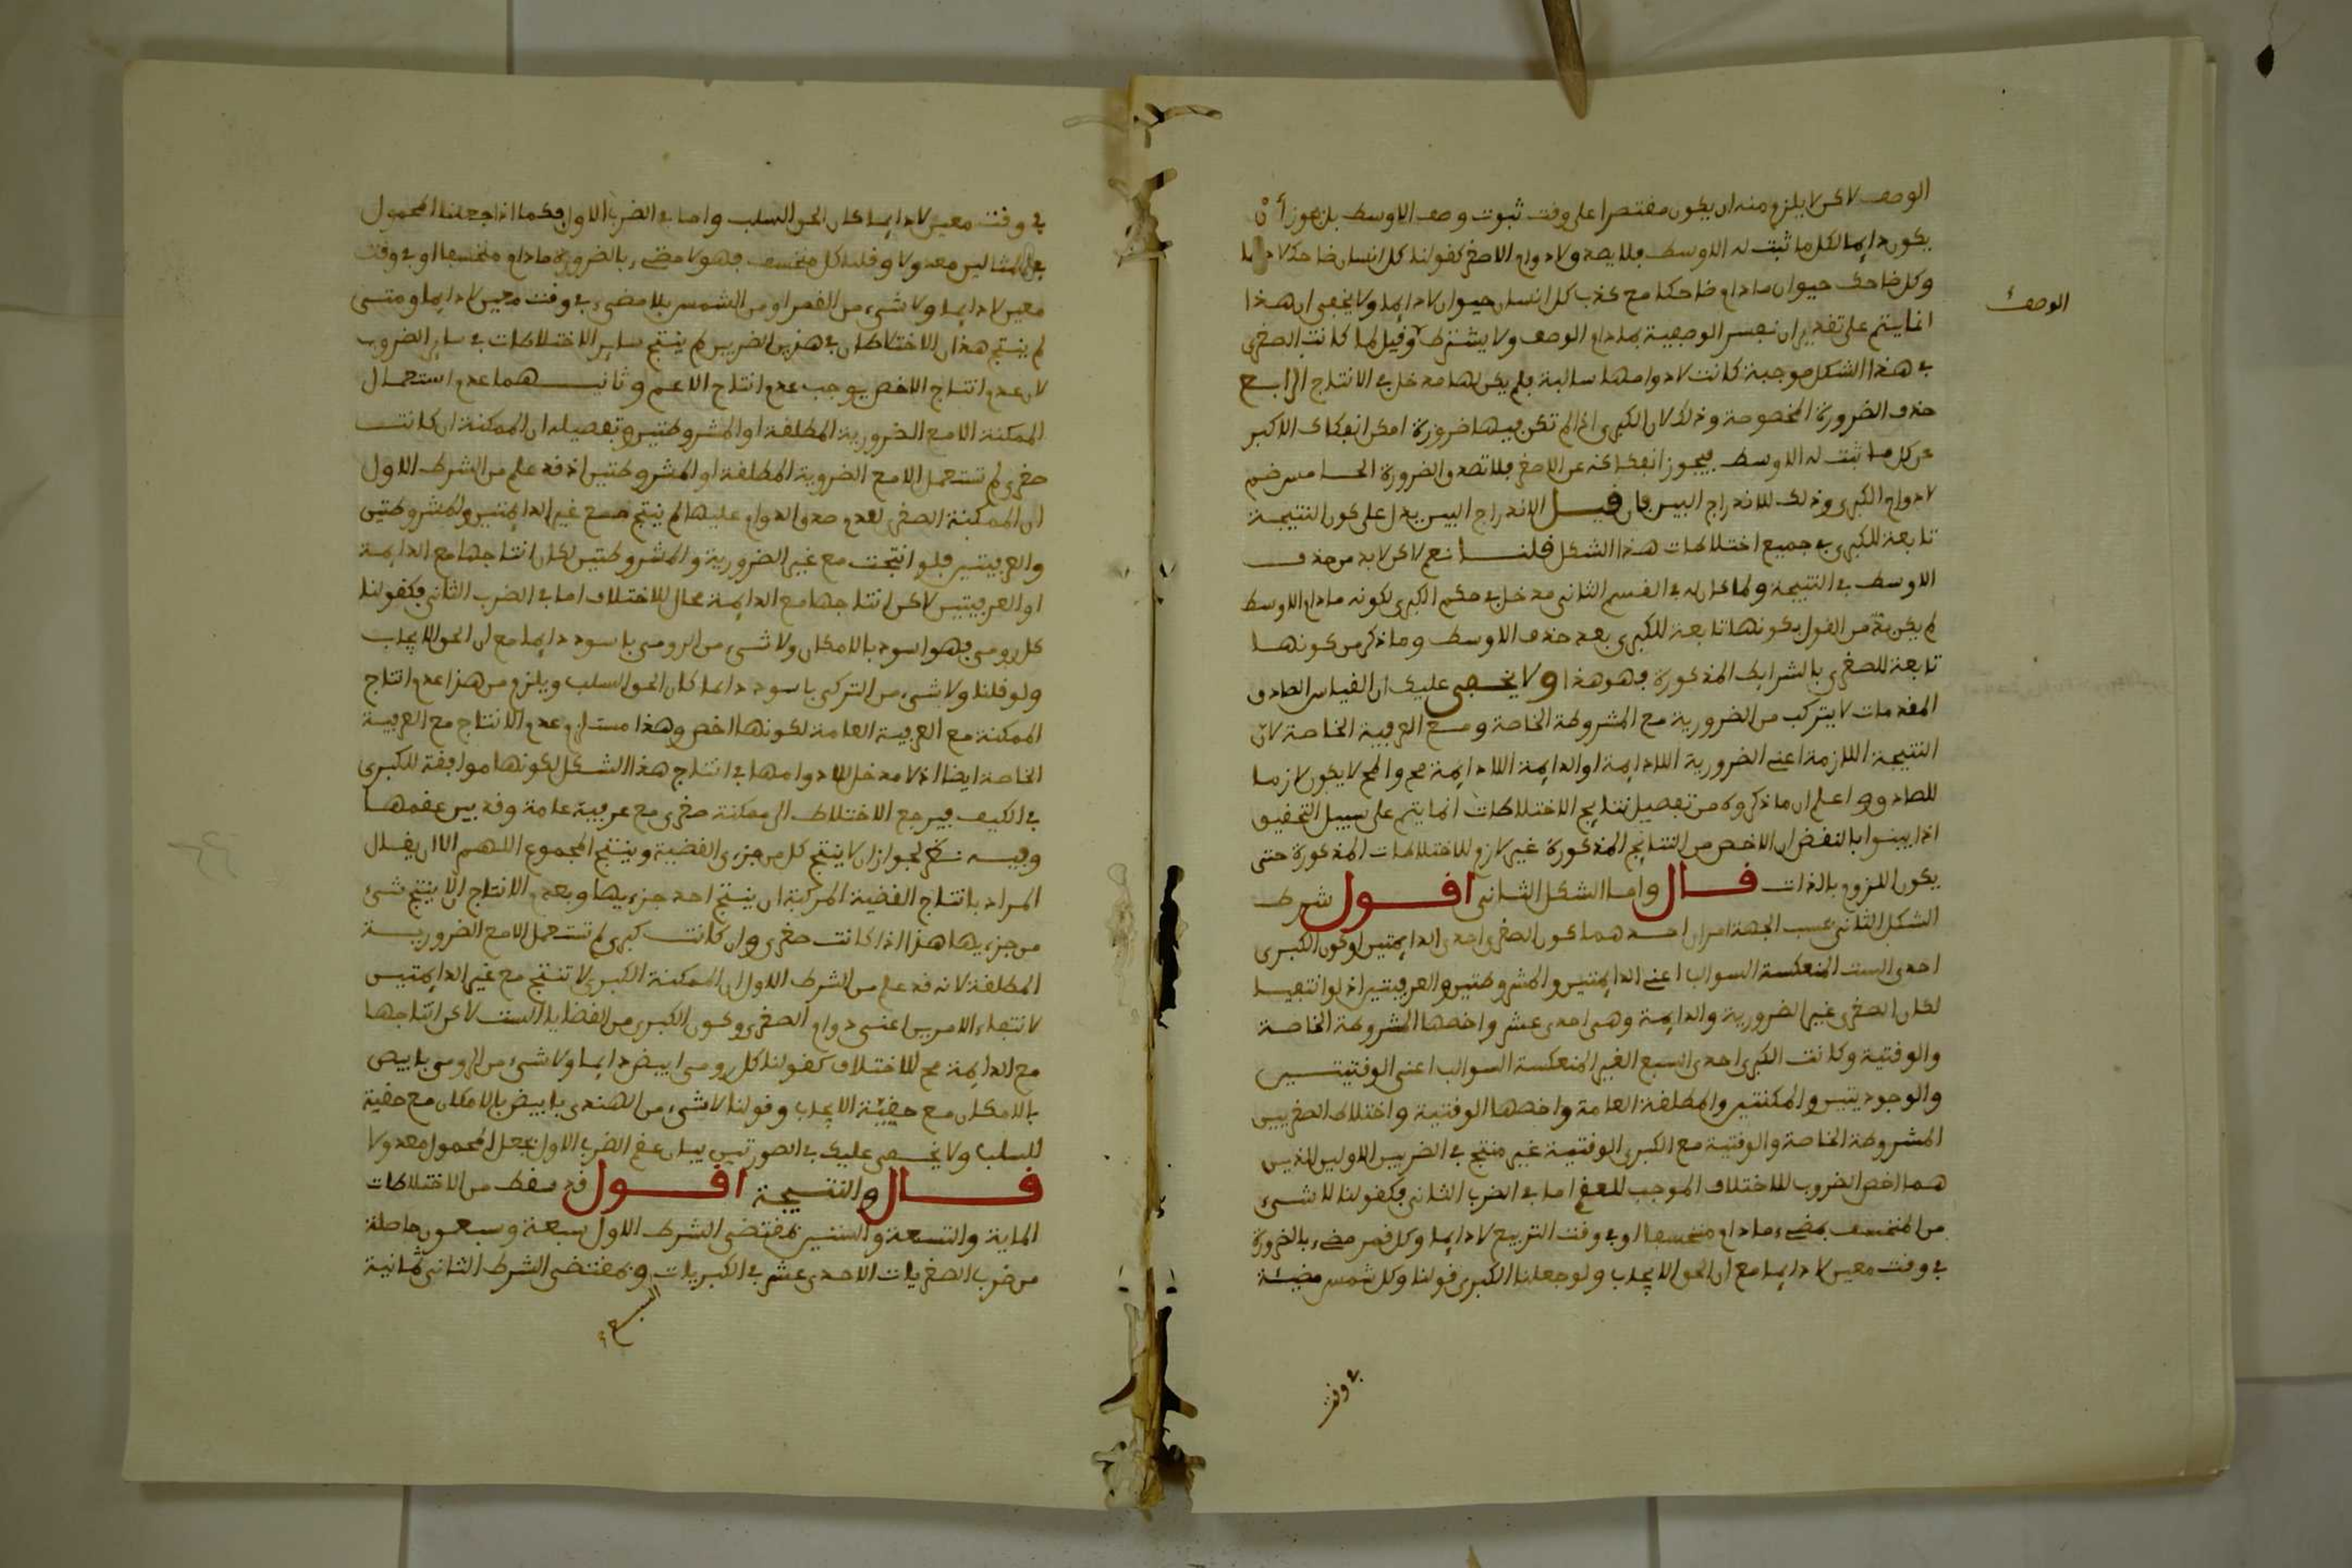 الوصف لاكن لا يلزم منه ان يكون مقتصرا على وقت ثبوت وصف الاوسط بل يجوز أن
يكون دايما لكل ما ثبت له الاوسط فلا يصدق لا دوام الاصغر كقولنا كل انسان ضاحك لا دايما
وكل ضاحك حيوان ما دام ضاحكا مع كذب كل انسان حيوان لا دايما ولا يخفى ان هذا
الوصف
انما يتم على تقدير ان نفسر الوصفية بما دام الوصف ولا يشترط وقيل لما كانت الصغرى
في هذا الشكل موجبة كانت لا دوامها سالبة فلم يكن لها مدخل في الانتاج الرابع
حذف الضرورة المخصوصة وذلك لان الكبرى اذا لم تكن فيها ضرورة امكن انفكاك الاكبر
عن كل ما ثبت له الاوسط فيجوز انفكاكه عن الاصغر فلا تصدق الضرورة الخامس ضم
لا دوام الكبرى وذلك للاندراج البين فان قيل الاندراج البين يدل على كون النتيجة
تابعة للكبرى في جميع اختلاطات هذا الشكل قلنا نعم لاكن لا بد من حذف
الاوسط في النتيجة ولما كان له في القسم الثاني مدخل في حكم الكبرى لكونه ما دام الاوسط
لم يكن بد من القول بكونها تابعة للكبرى بعد حذف الاوسط وما ذكر من كونها
تابعة للصغرى بالشرايط المذكورة فهو هذا ولا يخفى عليك ان القياس الصادق
المقدمات لا يتركب من الضرورية مع المشروطة الخاصة ومع العرفية الخاصة لان
النتيجة اللازمة اعني الضرورية اللادايمة او الدايمة اللادايمة مح والمح لا يكون لازما
للصادق واعلم ان ما ذكروه من تفصيل نتايج الاختلاطات انما يتم على سبيل التحقيق
اذا بينوا بالنقض ان الاخص من النتايج المذكورة غير لازم للاختلاطات المذكورة حتى
يكون اللزوم بالذات قال واما الشكل الثاني اقول شرط
الشكل الثاني بحسب الجهة امران احدهما كون الصغرى احدى الدايمتين او كون الكبرى
احدى الست المنعكسة السوالب اعني الدايمتين والمشروطتين والعرفيتين اذ لو انتفيا
لكان الصغرى غير الضرورية والدايمة وهي احدى عشر واخصها المشروطة الخاصة
والوقتية وكانت الكبرى احدى السبع الغير المنعكسة السوالب اعني الوقتيتين
والوجوديتين والممكنتين والمطلقة العامة واخصها الوقتية واختلاط الصغريين
المشروطة الخاصة والوقتية مع الكبرى الوقتية غير منتج في الضربين الاولين اللذين
هما اخص الضروب للاختلاف الموجب للعقم اما في الضرب الثاني فكقولنا لا شيء
من المنخسف بمضيء ما دام منخسفا او في وقت التربيع لا دايما وكل قمر مضيء بالضرورة
في وقت معين لا دايما مع ان الحق الايجاب ولو جعلنا الكبرى قولنا وكل شمس مضيئة
في وقت
في وقت معين لا دايما كان الحق السلب واما في الضرب الاول فكما اذا جعلنا المحمول
في المثالين معدولا وقلنا كل منخسف فهو لا مضيء بالضرورة ما دام منخسفا او في وقت
معين لا دايما ولا شيء من القمر او من الشمس بلا مضيء في وقت معين لا دايما ومتى
لم ينتج هذان الاختلاطان في هذين الضربين لم ينتج ساير الاختلاطات في ساير الضروب
لان عدم انتاج الاخص يوجب عدم انتاج الاعم وثانيهما عدم استعمال
الممكنة الا مع الضرورية المطلقة او المشروطتين وتفصيله ان الممكنة ان كانت
صغرى لم تستعمل الا مع الضرورية المطلقة او المشروطتين اذ قد علم من الشرط الاول
ان الممكنة الصغرى لعدم صدق الدوام عليها لم ينتج مع غير الدايمتين والمشروطتين
والعرفيتين فلو انتجت مع غير الضرورية والمشروطتين لكان انتاجها مع الدايمة
او العرفيتين لاكن انتاجها مع الدايمة محال للاختلاف اما في الضرب الثاني فكقولنا
كل رومي فهو اسود بالامكان ولا شيء من الرومي باسود دايما مع ان الحق الايجاب
ولو قلنا ولا شيء من التركي باسود دايما كان الحق السلب ويلزم من هذا عدم انتاج
الممكنة مع العرفية العامة لكونها اخص وهذا مستلزم عدم الانتاج مع العرفية
الخاصة ايضا اذ لا مدخل للادوامها في انتاج هذا الشكل لكونها موافقة للكبرى
في الكيف فيرجع الاختلاط الى ممكنة صغرى مع عرفية عامة وقد بين عقمها
وفيه نظر لجواز ان لا ينتج كل من جزءى القضية وينتج المجموع اللهم الا ان يقال
المراد بانتاج القضية المركبة ان ينتج احد جزءيها وبعدم الانتاج الا ينتج شيء
من جزءيها هذا اذا كانت صغرى وان كانت كبرى لم تستعمل الا مع الضرورية
المطلقة لانه قد علم من الشرط الاول ان الممكنة الكبرى لا تنتج مع غير الدايمتين
لانتفاء الامرين اعني دوام الصغرى وكون الكبرى من القضايا الست لاكن انتاجها
مع الدايمة مح للاختلاف كقولنا كل رومي ابيض دايما ولا شيء من الرومي بابيض
بالامكان مع حقيّة الايجاب وقولنا لا شيء من الهندي بابيض بالامكان مع حقية
السلب ولا يخفى عليك في الصورتين بيان عقم الضرب الاول بجعل المحمول معدولا
قال والنتيجة اقول قد سقط من الاختلاطات
الماية والتسعة والستين بمقتضى الشرط الاول سبعة وسبعون حاصلة
من ضرب الصغريات الاحدى عشر في الكبريات وبمقتضى الشرط الثاني ثمانية
السبع